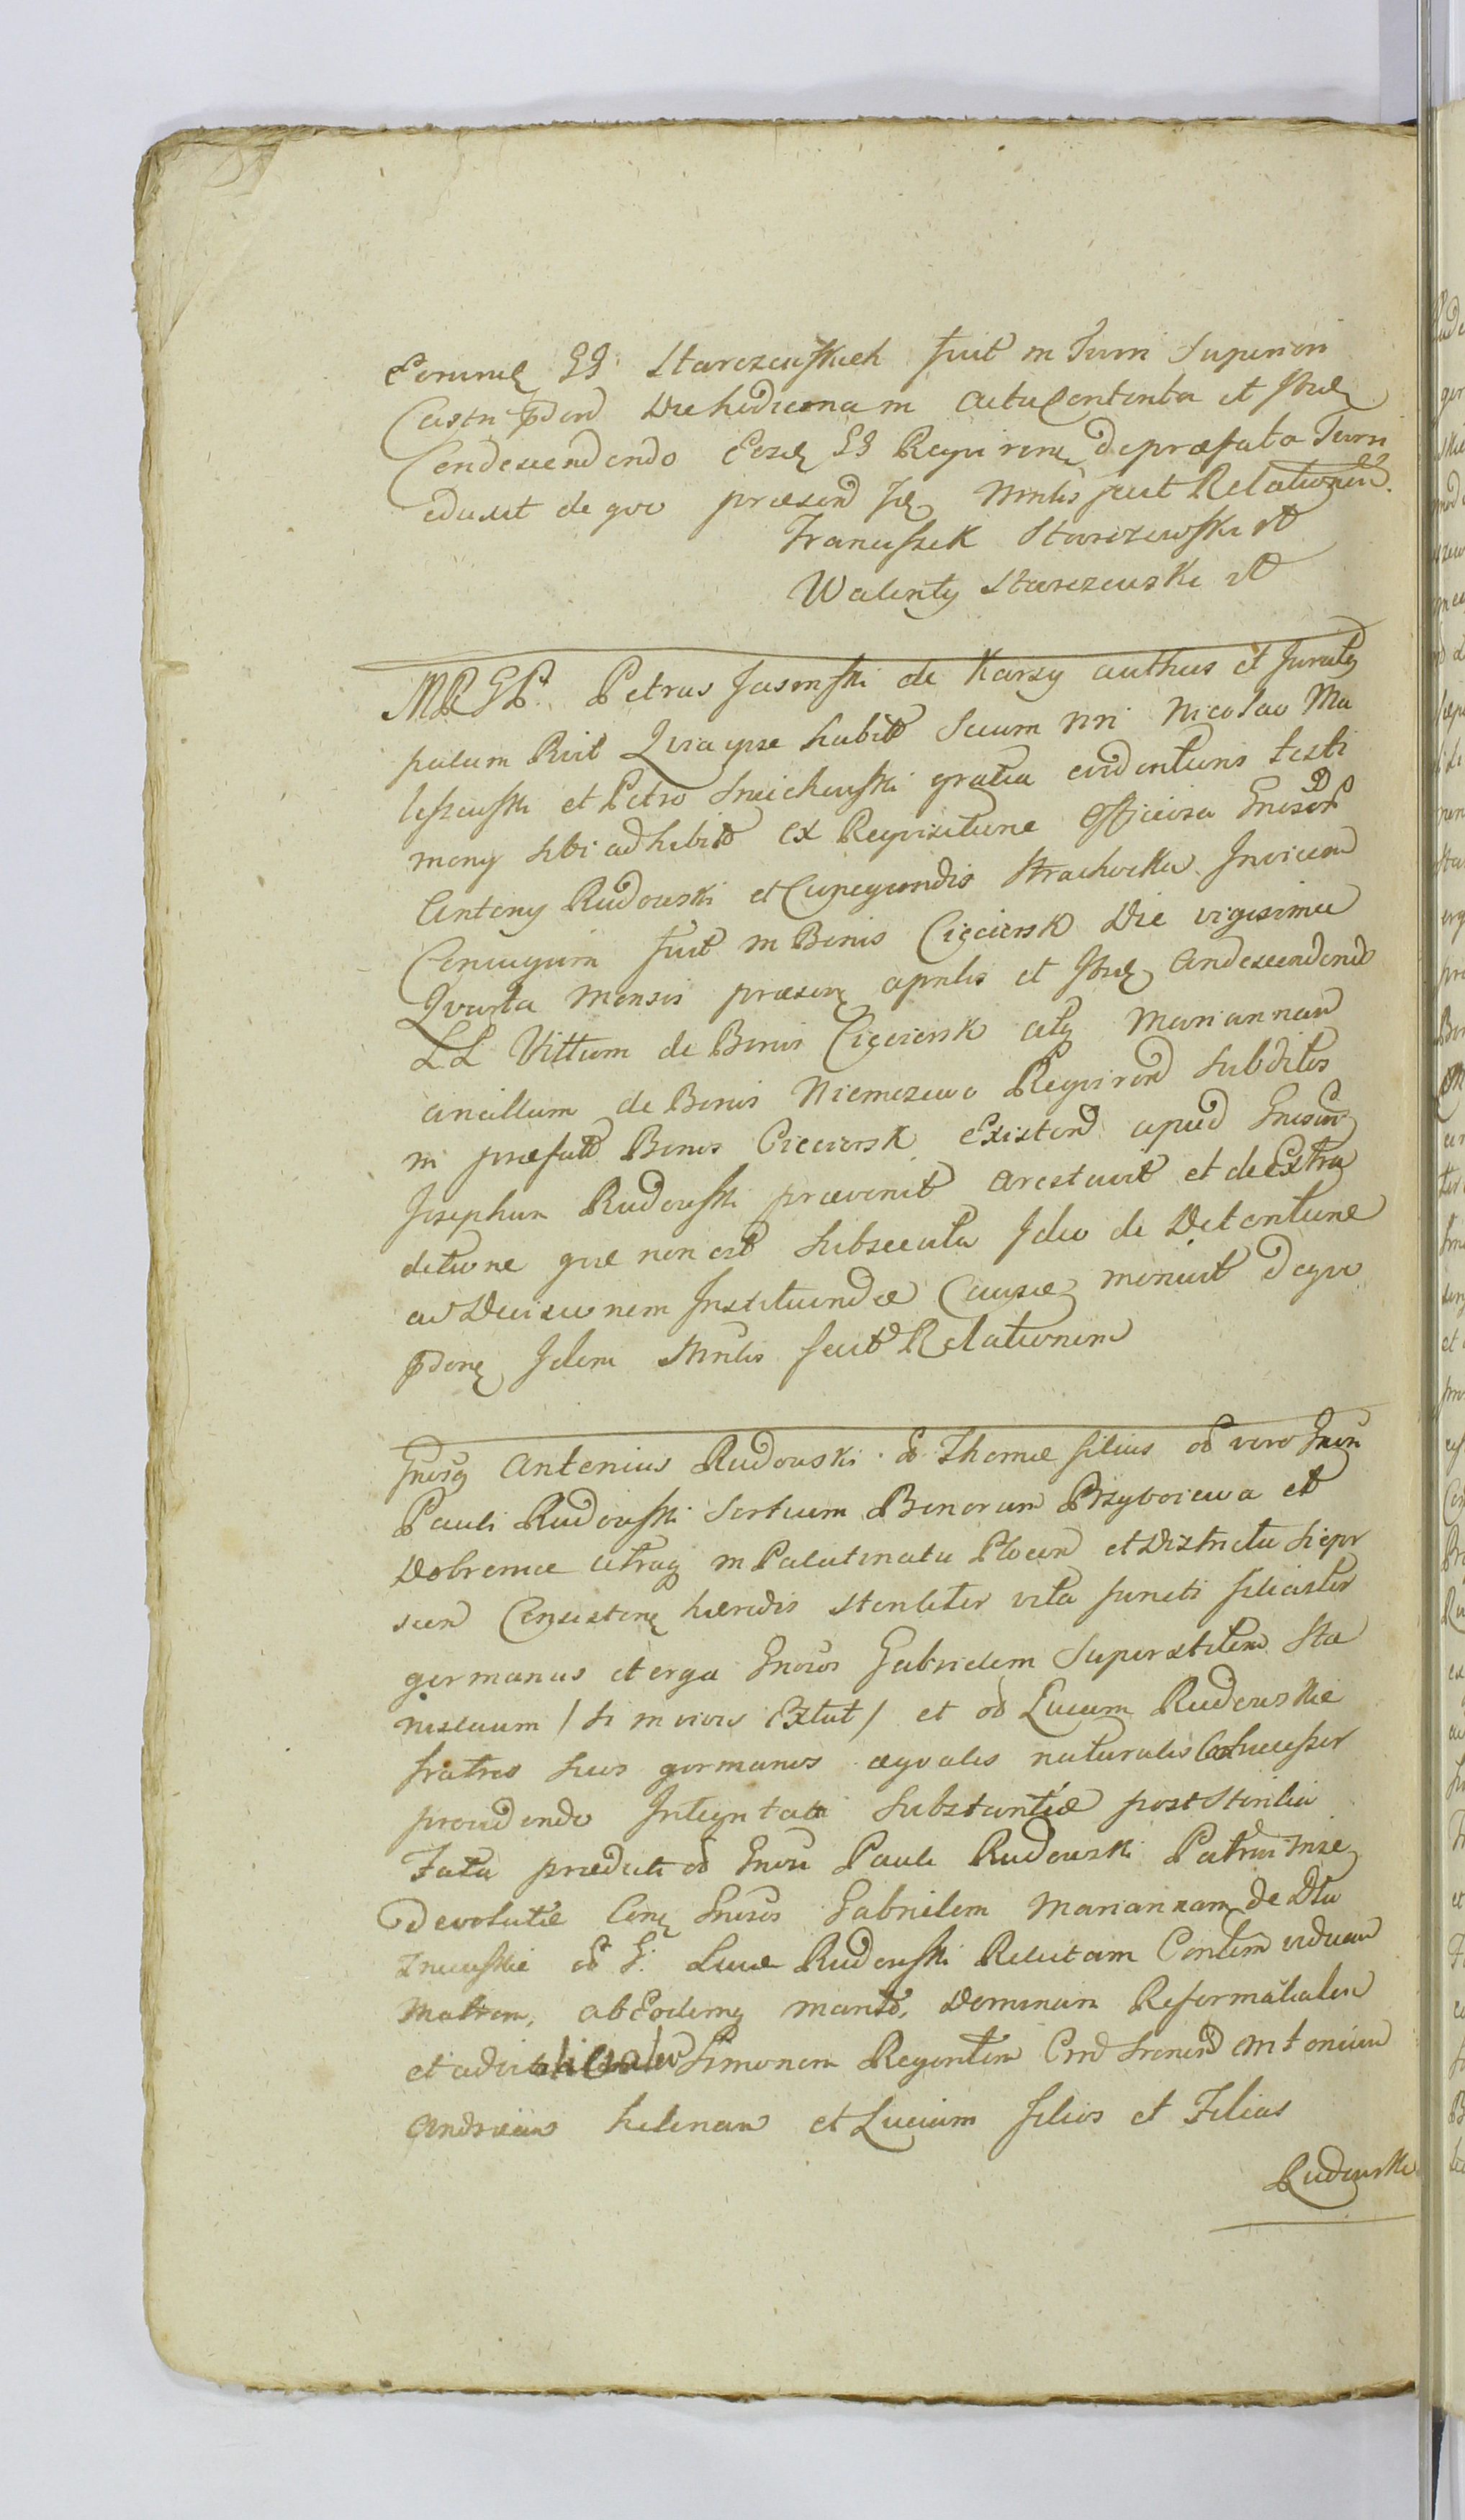 Eorumq GG Starczewskich fuit in Turri Superiori
Castri pdend Die hodierna in actu Contenta et ibid
Condescendendo Eosd GG Requiren de praefata Turri
eduxit de quo praesend Id Minlis fecit Relationem.
Franciszek Starczewski
Walenty Starczewski
Petrus Jasinski de Karsy authus et Juratq
palam Rcit Quia ipse habitt Secum Nri Nicolao Ma
leszewski et Petro Smichowski gratia evidentioris testi
mony sibi adhibitt ex Requisitione Officiosa Gnosor
Antony Rudowski et Cunegundis Strachocka Invicem
Coniugum fuit in Bonis Cięciersk Die vigesima
Quarta Mensis praesen aprilis et ibid Condescendendo
LL Vittum de Bonis Cięciersk atq Mariannam
ancillam de Bonis Niemczewo Requirend Subditos
in praefatt Bonis Cięciersk Existend apud Gnosum
Josephum Rudowski praevenit arestavit et de Extra
ditione quae non est Subsecuta Ideo de Detentione
ad Decisionem Instituendae Causae monuit de quo
pdens Idem Minlis fecit Relationem
Gnosq Antonius Rudowski od Thomae filius od vero Gnosi
Pauli Rudowski Sortium Bonorum Przyborewa et
Dobrenice utraq in Palatinatu Plocen et Districtu Sierp
scen Consisten haeredis Steriliter vita functi filiaster
germanus et erga Gnosos Gabrielem Superstitem Sta
nislaum / si in vivis Extat / et od Lucam Rudowskie
fratres suos germanos aequalis naturalis Successor
providendo Integritati Substantiae post Sterilia
Fata praedicti od Gnosi Pauli Rudowski
Devolutae Gnosos Gabrielem Mariannam de
od G. Lucae Rudowski Relictam Consortem viduam
Matrem, ab Eodemq marito, Dominam Reformatialem
et Simonem Regentem Antonium
Andream Helenam et Luciam filios et Filias
Rudowskie